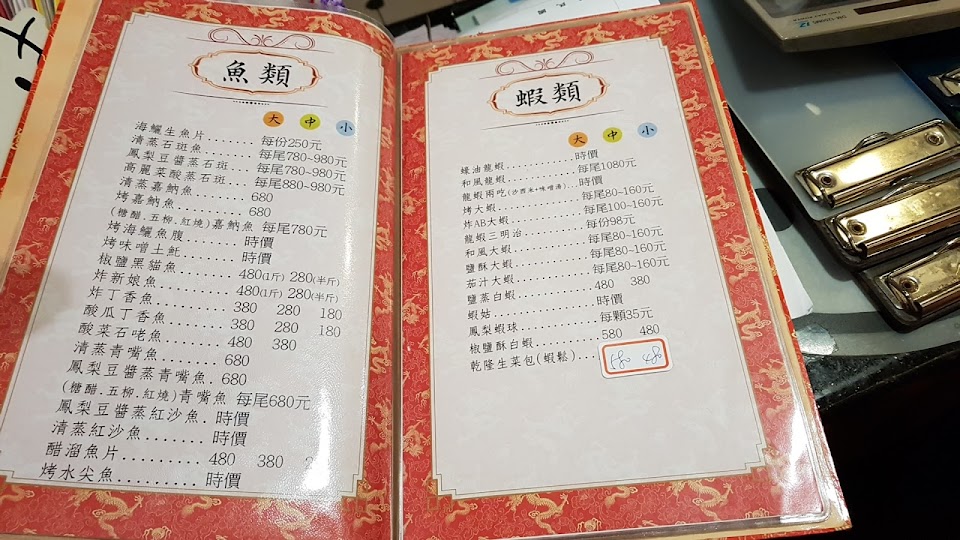 魚類
大 中 小
海鱺生魚片....... 每份250元
清蒸石斑魚....... 每尾780~980元
鳳梨豆醬蒸石斑... 每尾780~980元
高麗菜酸蒸石斑... 每尾880~980元
清蒸嘉魶魚....... 680
烤嘉魶魚......... 680
(糖醋.五柳.紅燒)嘉魶魚 每尾780元
烤海鱺魚腹....... 時價
烤味噌土魠....... 時價
椒鹽黑貓魚....... 480(1斤) 280(半斤)
炸新娘魚......... 480(1斤) 280(半斤)
炸丁香魚......... 380 280 180
酸瓜丁香魚....... 380 280 180
酸菜石咾魚....... 480 380
清蒸青嘴魚....... 680
鳳梨豆醬蒸青嘴魚. 680
(糖醋.五柳.紅燒)青嘴魚 每尾680元
鳳梨豆醬蒸紅沙魚. 時價
清蒸紅沙魚....... 時價
醋溜魚片.......... 480 380
烤水尖魚.......... 時價
蝦類
大 中 小
蠔油龍蝦.......... 時價
和風龍蝦.......... 每尾1080元
龍蝦兩吃(沙西米+味噌湯)... 時價
烤大蝦............ 每尾80~160元
炸AB大蝦.......... 每尾100~160元
龍蝦三明治........ 每份98元
和風大蝦.......... 每尾80~160元
鹽酥大蝦.......... 每尾80~160元
茄汁大蝦.......... 每尾80~160元
鹽蒸白蝦.......... 480 380
蝦姑.............. 時價
鳳梨蝦球.......... 每顆35元
椒鹽酥白蝦........ 580 480
乾隆生菜包(蝦鬆).. 580 480